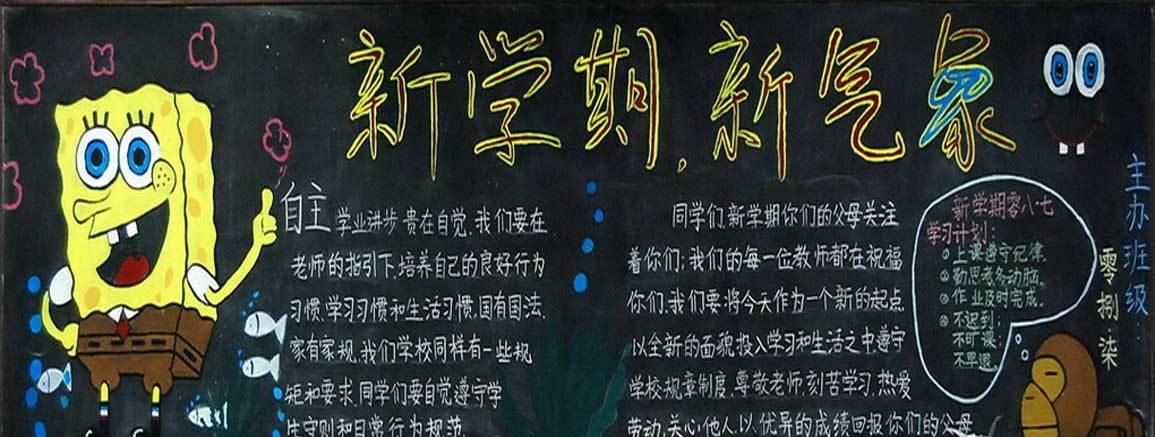 新学期,新气象
自主 学业进步 贵在自觉.我们要在
老师的指引下,培养自己的良好行为
习惯,学习习惯和生活习惯.国有国法.
家有家规.我们学校同样有一些规
矩和要求.同学们要自觉遵守学
生守则和日常行为规范.
同学们,新学期你们的父母关注
着你们;我们的每一位教师都在祝福
你们.我们要将今天作为一个新的起点
以全新的面貌投入学习和生活之中.遵守
学校规章制度.尊敬老师,刻苦学习.热爱
劳动.关心他人.以优异的成绩回报你们的父母
新学期零八七
学习计划:
①上课遵守纪律.
②勤思考多动脑.
③作业及时完成.
④不迟到;
不旷课;
不早退.
主办班级:
零捌染